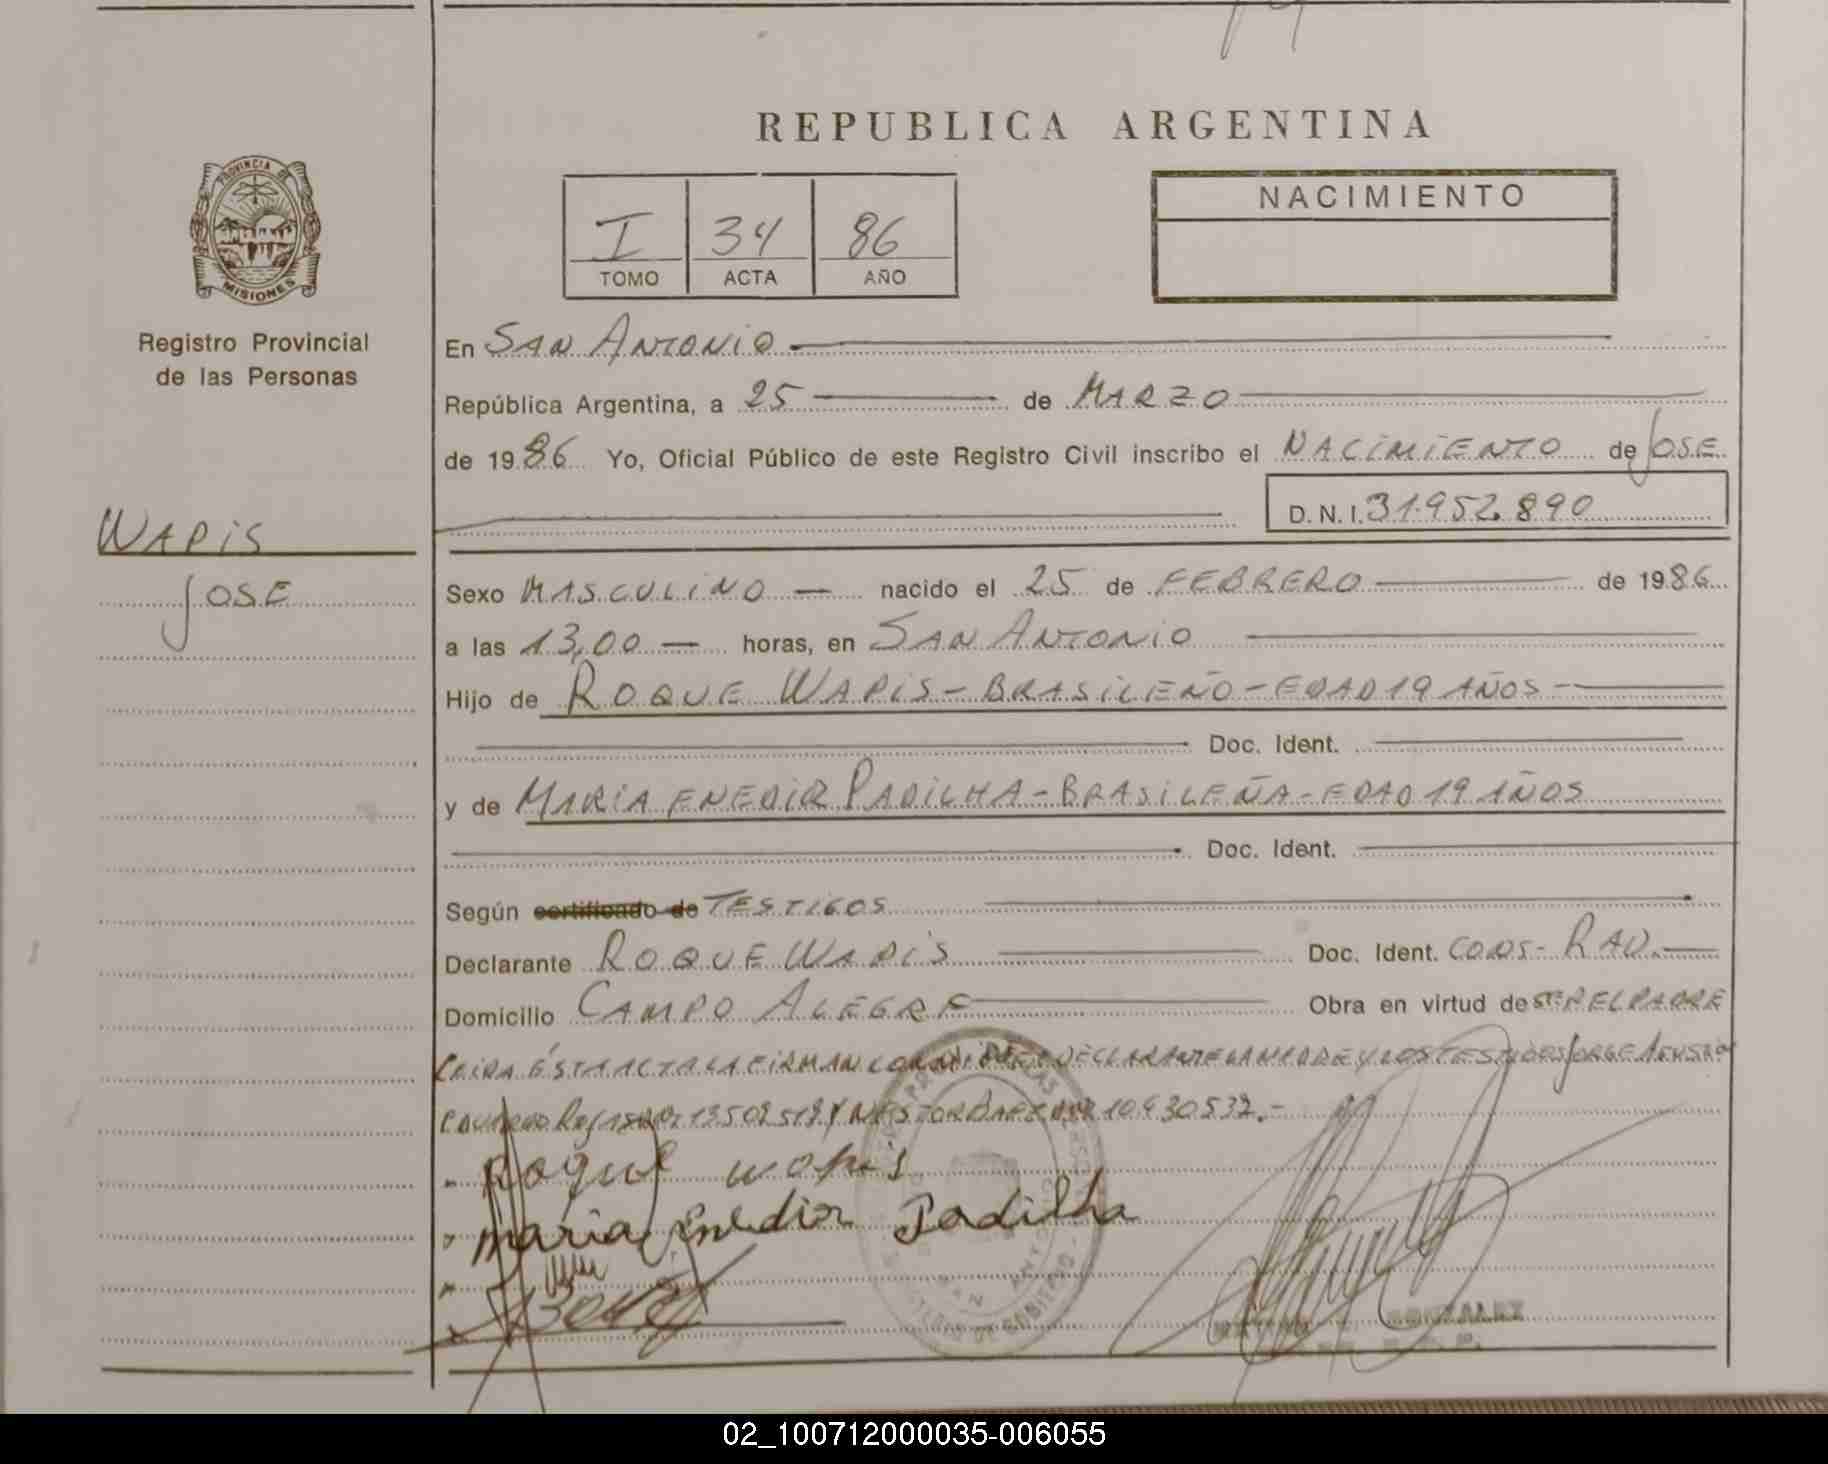 REPUBLICA ARGENTINA
PROVINCIA DE
MISIONES
Registro Provincial
de las Personas
I 34 86
TOMO ACTA AÑO
NACIMIENTO
En SAN ANTONIO
República Argentina, a 25 de MARZO
de 1986 Yo, Oficial Público de este Registro Civil inscribo el NACIMIENTO de JOSE
D. N. I. 31.952.890
WAPIS
JOSE
Sexo MASCULINO nacido el 25 de FEBRERO de 1986
a las 13,00 horas, en SAN ANTONIO
Hijo de ROQUE WAPIS - BRASILEÑO - EDAD 19 AÑOS -
Doc. Ident.
y de MARIA ENEDIR PADILHA - BRASILEÑA - EDAD 19 AÑOS
Doc. Ident.
Según certificado de TESTIGOS
Declarante ROQUE WAPIS Doc. Ident. CODS- RAD.
Domicilio CAMPO ALEGRE Obra en virtud de SER EL PADRE
LEIDA ÉSTA ACTA LA FIRMAN CONMIGO EL DECLARANTE LA MADRE Y LOS TESTIGOS JORGE
13502519 Y NESTOR 10.430.532.-
Roque Wapis
maria Enedir Padilha
SAN ANTONIO
GONZALEZ
02_100712000035-006055